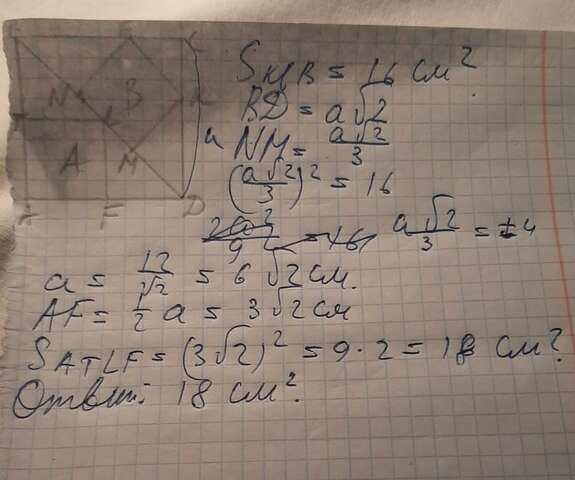 E
N
B
K
L
A
M
A
F
D
a
S кв B = 16 см²
BD = a√2
NM = a√2/3
(a√2/3)² = 16
a√2/3 = ±4
a = 12/√2 = 6√2 см.
AF = 1/2 a = 3√2 см
S ATLF = (3√2)² = 9·2 = 18 см²
Ответ: 18 см².